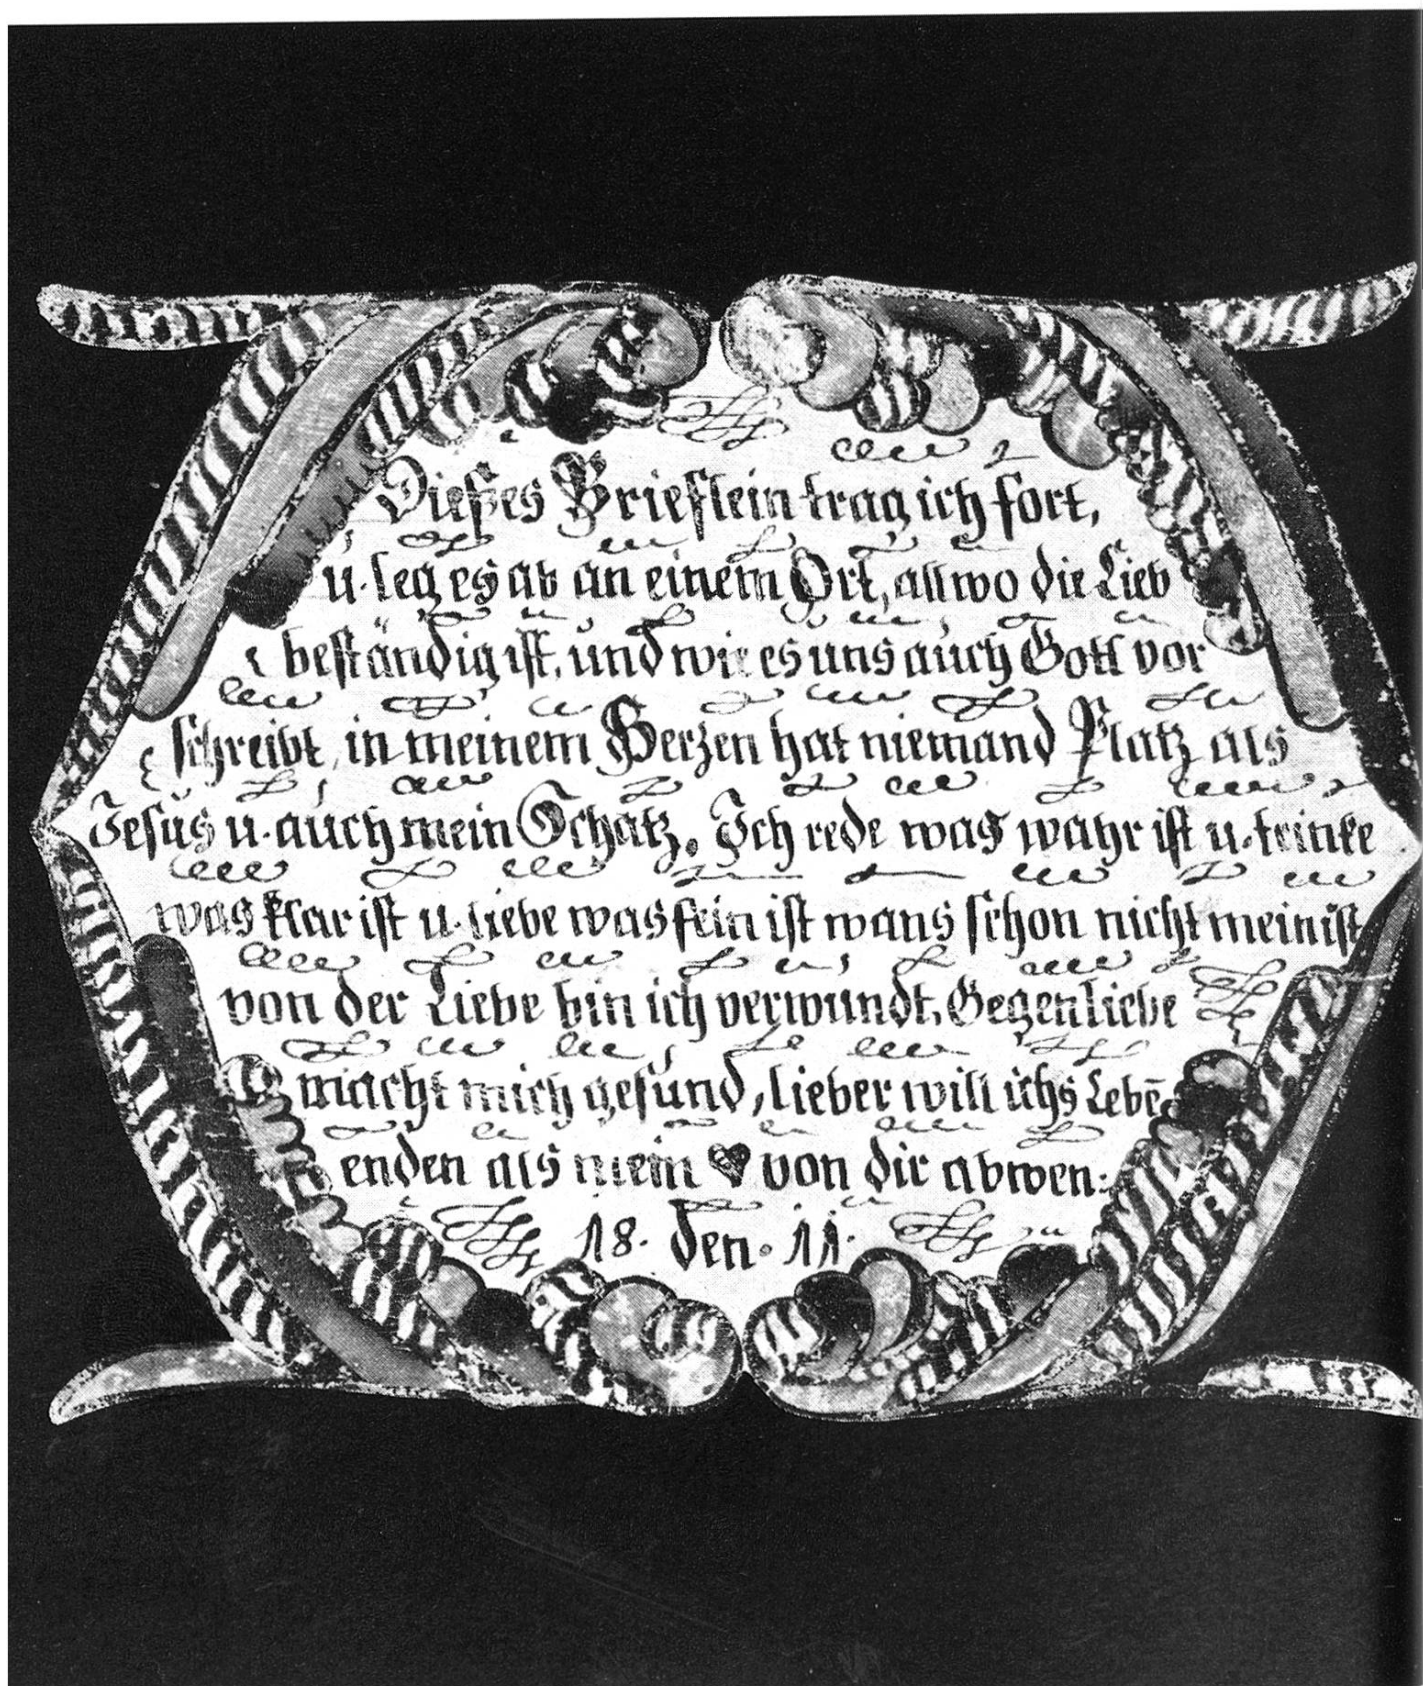 Dieses Brieflein trag ich fort,
u. leg es ab an einem Ort, allwo die Lieb
beständig ist, und wie es uns auch Gott vor
schreibt, in meinem Herzen hat niemand Platz als
Jesus u. auch mein Schatz. Ich rede was wahr ist u. trinke
was klar ist u. liebe was fein ist wans schon nicht mein ist
von der Liebe bin ich verwundt, Gegenliebe
macht mich gesund, lieber will ichs Lebē
enden als mein ♥ von dir abwen:
18. den. 11.